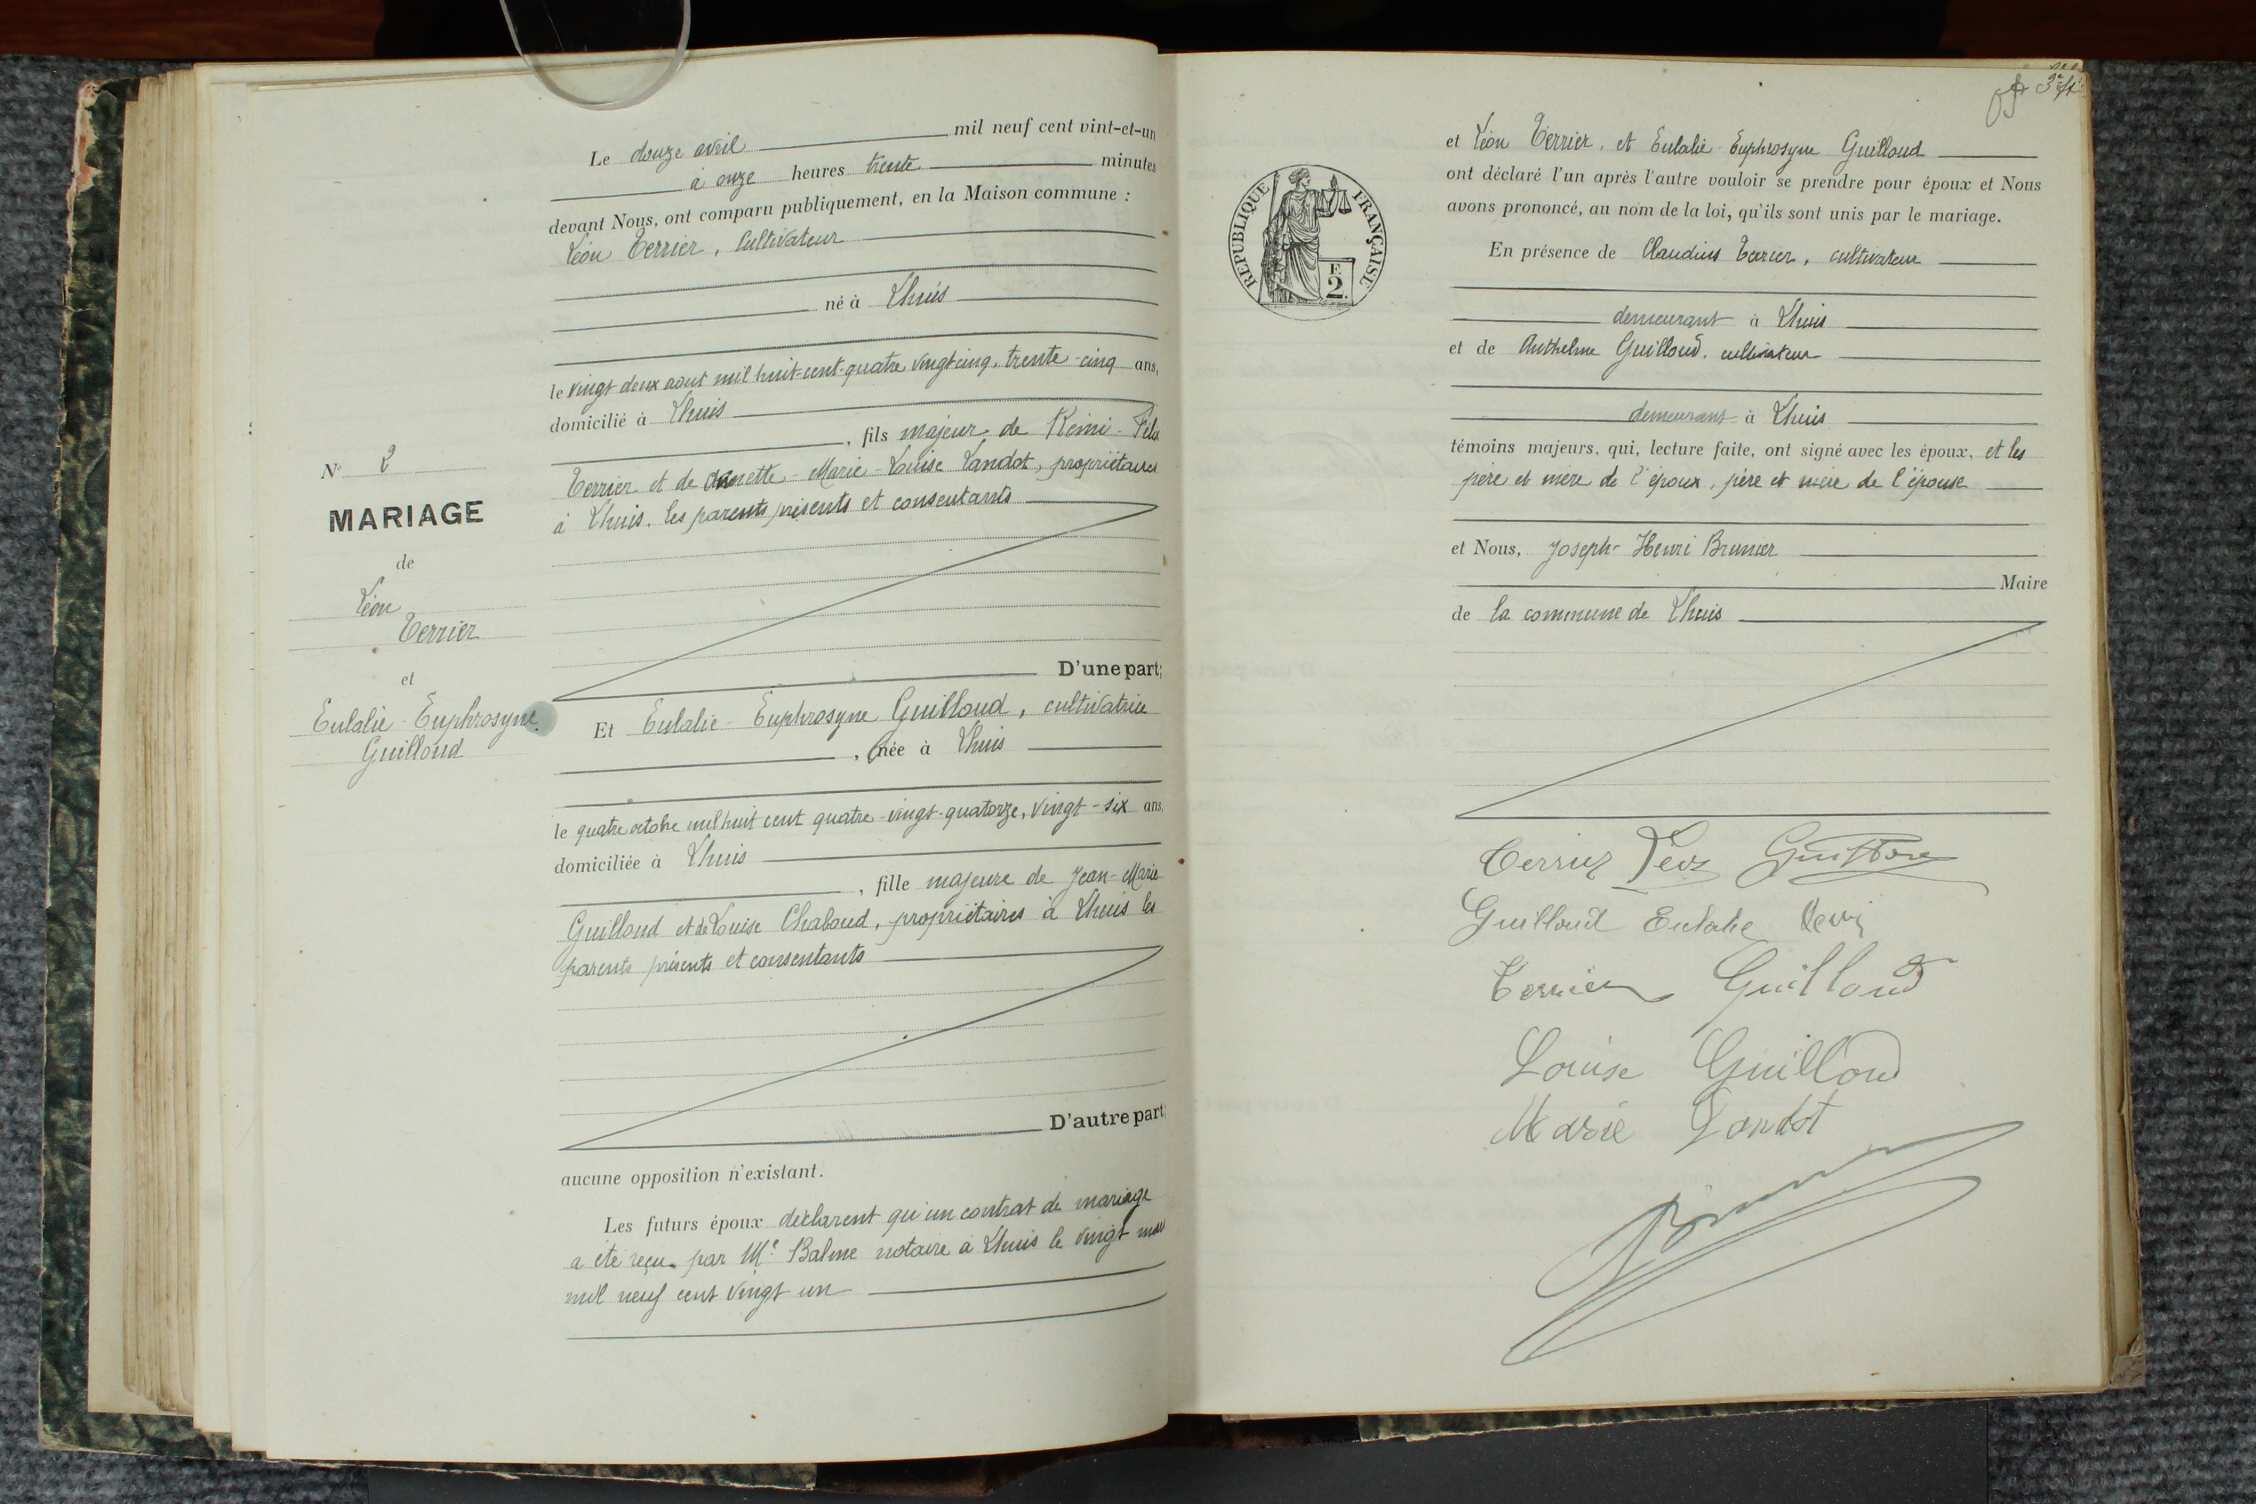 Le douze avril mil neuf cent vint-et-un
à onze heures trente minutes
devant Nous, ont comparu publiquement, en la Maison commune :
Léon Terrier, Cultivateur
né à Lhuis
le vingt deux aout mil huit-cent-quatre vingt-cinq, trente-cinq ans,
domicilié à Lhuis
, fils majeur de Rémi-Félix
Terrier et de Annette-Marie-Louise Landot, propriétaires
à Lhuis, les parents présents et consentants
N° 2
MARIAGE
de
Léon
Terrier
et
Eulalie-Euphrosyne
Guilloud
D'une part;
Et Eulalie-Euphrosyne Guilloud, cultivatrice
, née à Lhuis
le quatre octobre mil huit cent quatre-vingt-quatorze, vingt-six ans,
domiciliée à Lhuis
, fille majeure de Jean-Marie
Guilloud et de Louise Chaboud, propriétaires à Lhuis les
parents présents et consentants
D'autre part;
aucune opposition n'existant.
Les futurs époux déclarent qu'un contrat de mariage
a été reçu par Me Balme notaire à Lhuis le vingt mars
mil neuf cent vingt un
et Léon Terrier, et Eulalie-Euphrosyne Guilloud
ont déclaré l'un après l'autre vouloir se prendre pour époux et Nous
avons prononcé, au nom de la loi, qu'ils sont unis par le mariage.
RÉPUBLIQUE FRANÇAISE
F.
2.
En présence de Claudius Terrier, cultivateur
demeurant à Lhuis
et de Anthelme Guilloud, cultivateur
demeurant à Lhuis
témoins majeurs, qui, lecture faite, ont signé avec les époux, et les
père et mère de l'époux, père et mère de l'épouse
et Nous, Joseph-Henri Brunier
Maire
de la commune de Lhuis
Terrier Léon
Guilloud Eulalie
Terrier Guilloud
Louise Guilloud
Marie Landot